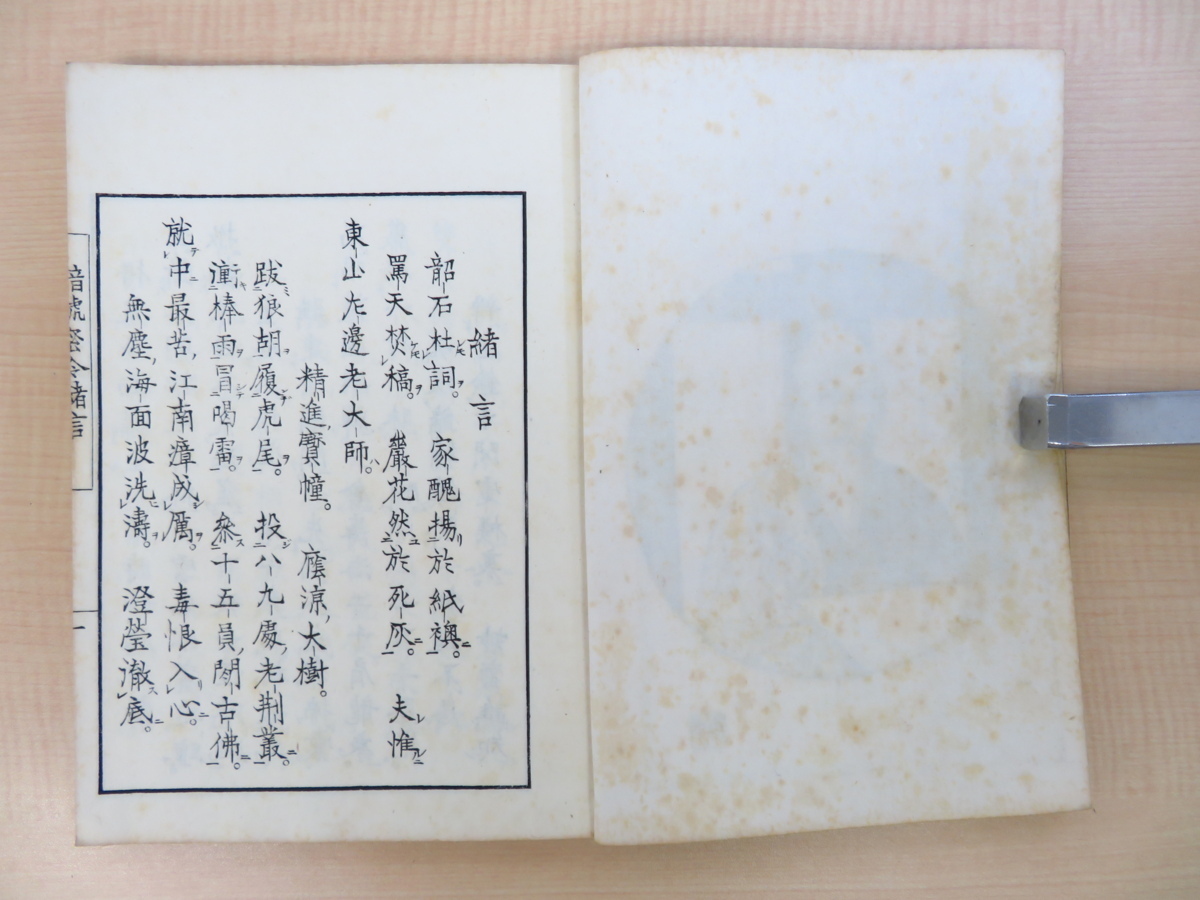 緒言
韶石杜詞。家醜揚於紙襖。
罵天焚稿。嚴花然於死灰。夫惟
東山左邊老大師。
精進寶幢。廕涼大樹。
跋狼胡履虎尾。投八九處老荆叢。
衝棒雨冒喝雷。参十五員閑古佛。
就中最苦江南瘴成厲。毒恨入心。
無塵海面波洗濤。澄瑩徹底。
緒言
一